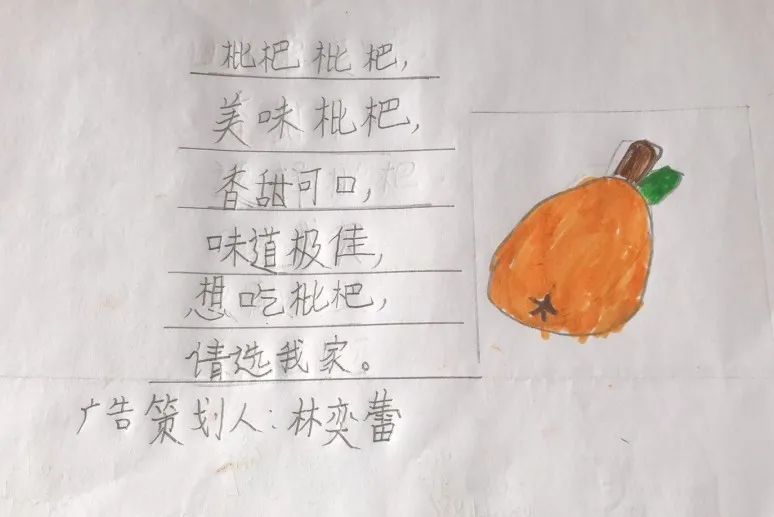 枇杷枇杷，
美味枇杷，
香甜可口，
味道极佳，
想吃枇杷，
请选我家。
广告策划人：林奕蕾